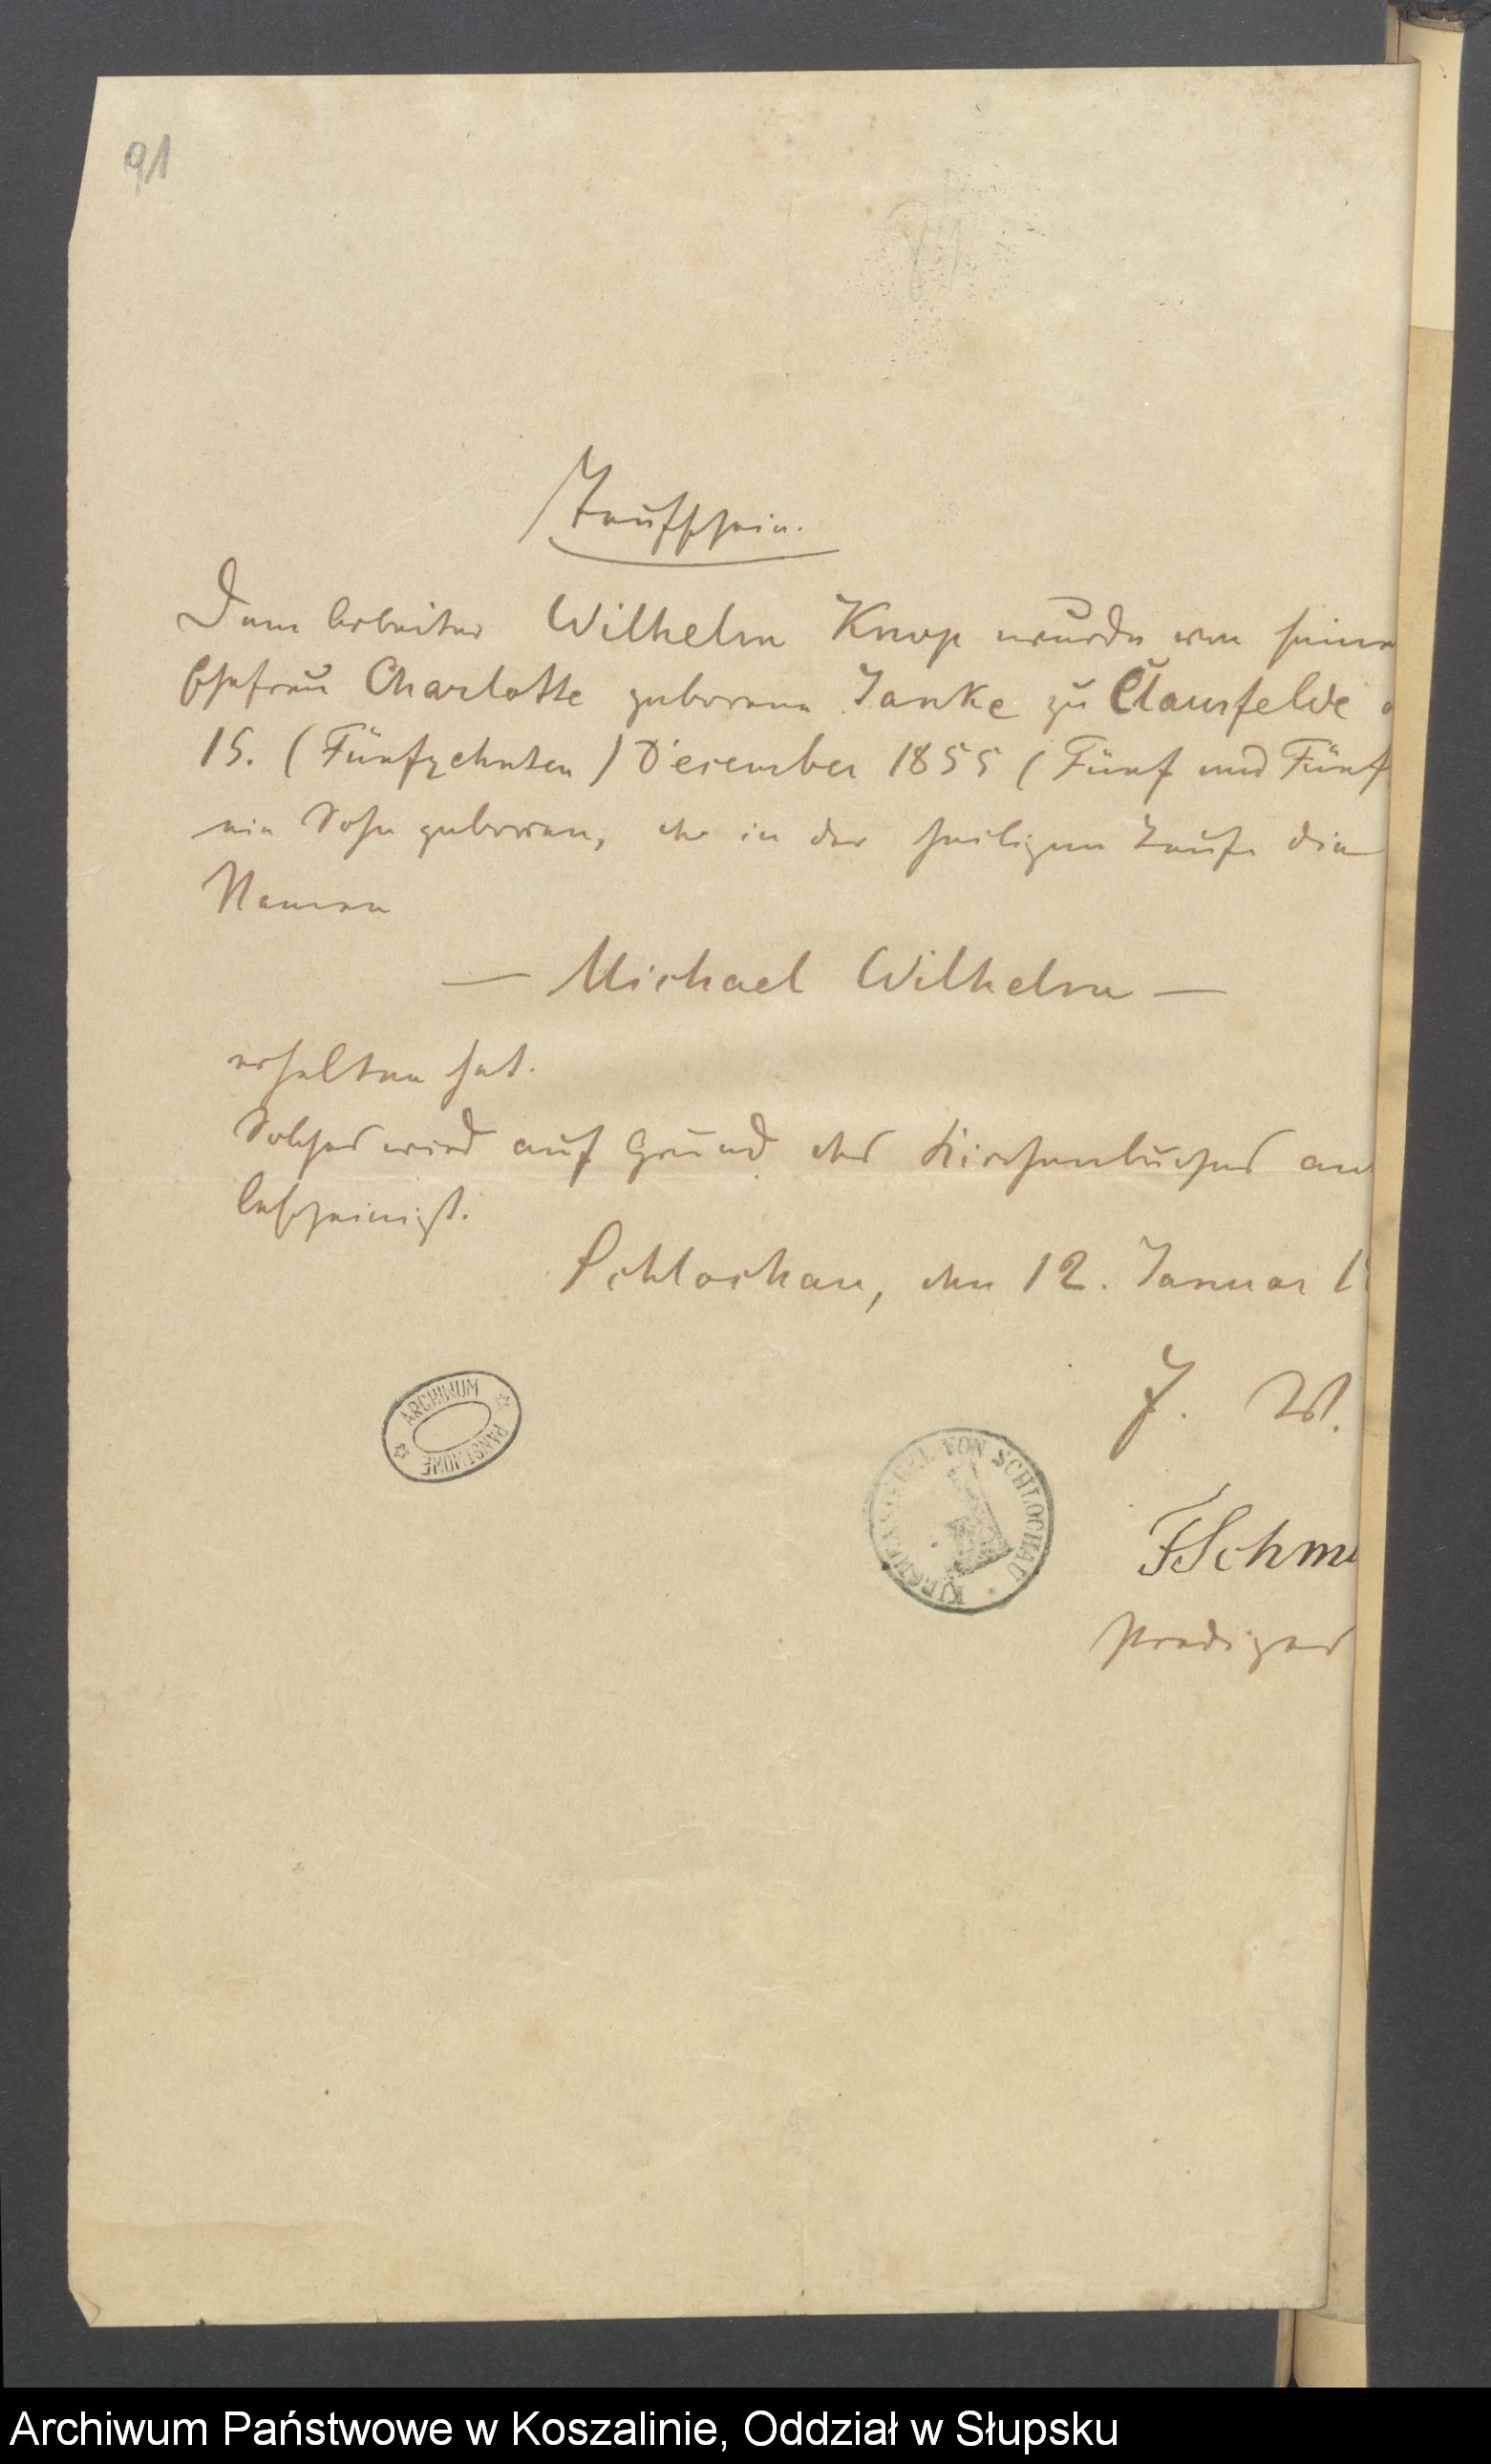 91
Taufschein.
Dem Arbeiter Wilhelm Knop wurde von seiner
Ehefrau Charlotte geborene Janke zu Clausfelde
15. (Fünfzehnten) Dezember 1855 (Fünf und Fünf
ein Sohn geboren, der in der heiligen Taufe die
Namen
— Michael Wilhelm —
erhalten hat.
Solches wird auf Grund des Kirchenbuches
bescheinigt.
Schlochau, den 12. Januar 1
J. W.
FSchm
Prediger
ARCHIWUM PAŃSTWOWE
VON SCHLOCHAU
Archiwum Państwowe w Koszalinie, Oddział w Słupsku